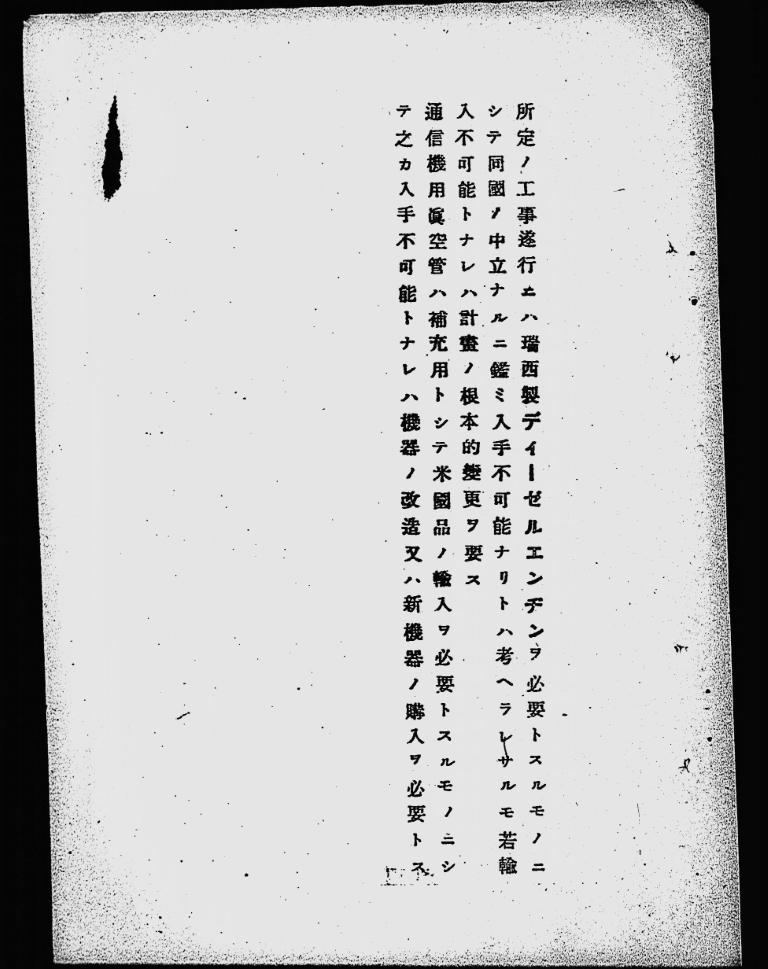 所定ノ工事遂行ニハ瑞西製ディーゼルエンヂンヲ必要トスルモノニ
シテ同國ノ中立ナルニ鑑ミ入手不可能ナリトハ考ヘラレサルモ若輸
入不可能トナレハ計畫ノ根本的變更ヲ要ス
通信機用眞空管ハ補充用トシテ米國品ノ輸入ヲ必要トスルモノニシ
テ之カ入手不可能トナレハ機器ノ改造又ハ新機器ノ購入ヲ必要トス